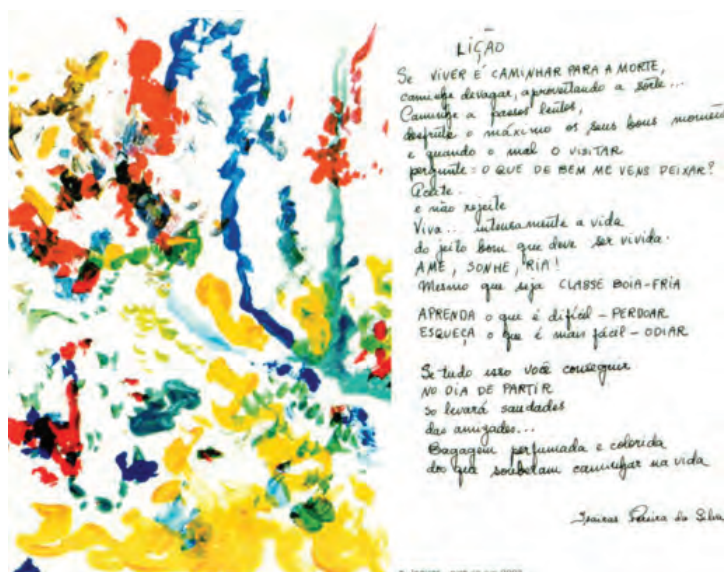 LIÇÃO
Se VIVER É CAMINHAR PARA A MORTE,
caminhe devagar, aproveitando a sorte...
Caminhe a passos lentos,
desfrute o máximo os seus bons moment
e quando o mal O VISITAR
pergunte: O QUE DE BEM ME VENS DEIXAR?
Aceite.
e não rejeite
Viva... intensamente a vida
do jeito bom que deve ser vivida.
AME, SONHE, RIA!
Mesmo que seja CLASSE BOIA-FRIA
APRENDA o que é difícil - PERDOAR
ESQUEÇA o que é mais fácil - ODIAR
Se tudo isso você conseguir
NO DIA DE PARTIR
só levará saudades
das amizades...
Bagagem perfumada e colorida
dos que souberam caminhar na vida
Pereira da Silva